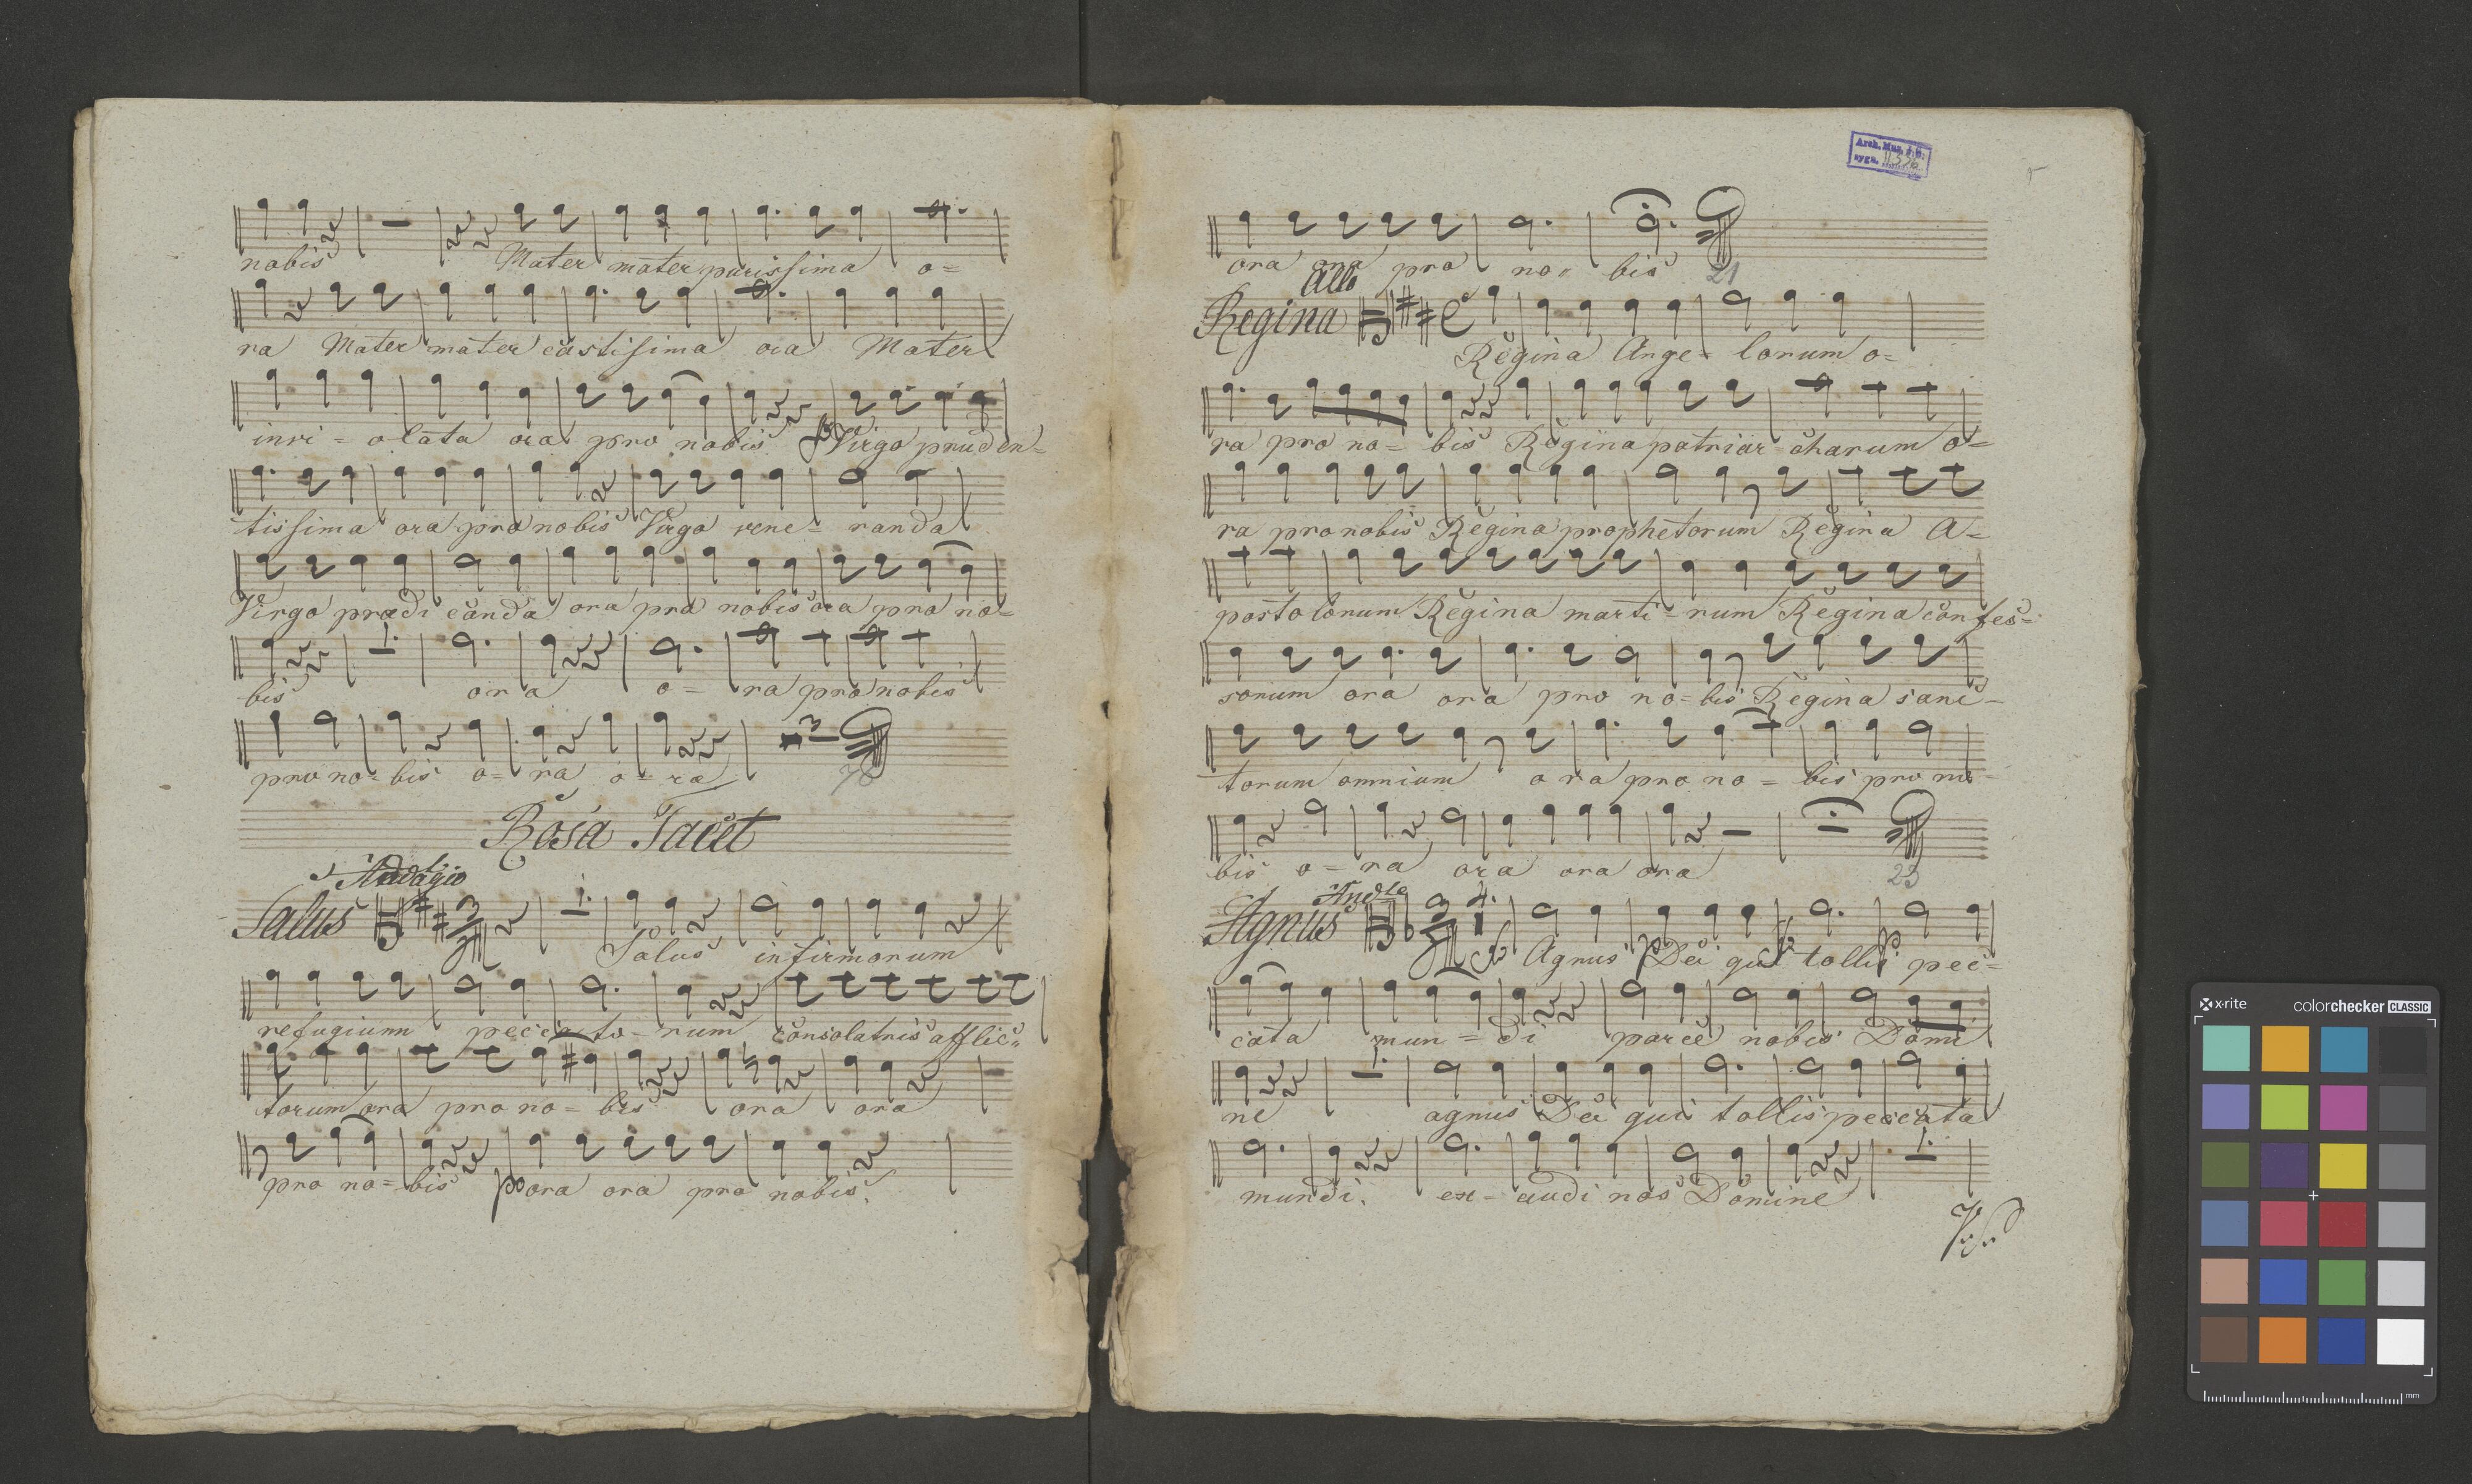 nobis Mater mater purissima o=
ra Mater mater castissima ora Mater
invi=olata ora pro nobis Virgo pruden=
tissima ora pro nobis Virgo vene=randa
Virgo prædicanda ora pro nobis ora pro no=
bis ora o=ra pro nobis
pro no=bis o=ra o=ra
78
Rosa Tacet
Adagio
Salus
Salus infirmorum
refugium pecca=to=rum consolatris afflic=
torum ora pro no=bis ora ora
pro no=bis po ora ora pro nobis.
Arch. Muz. J. G.
sygn. II.53a
5
ora ora pro no=bis
21
Allo
Regina
Regina Ange=lorum o=
ra pro no=bis Regina patriar=charum o=
ra pro nobis Regina prophetorum Regina A=
postolorum Regina marti=rum Regina confes=
sorum ora ora pro no=bis Regina sanc=
torum omnium ora pro no=bis pro no=
bis o=ra ora ora ora
23
Andte
Agnus
Agnus Dei qui tollis pec=
cata mun=di parce nobis Domi
ne agnus Dei qui tollis peccata
mundi. ex=audi nos Domine